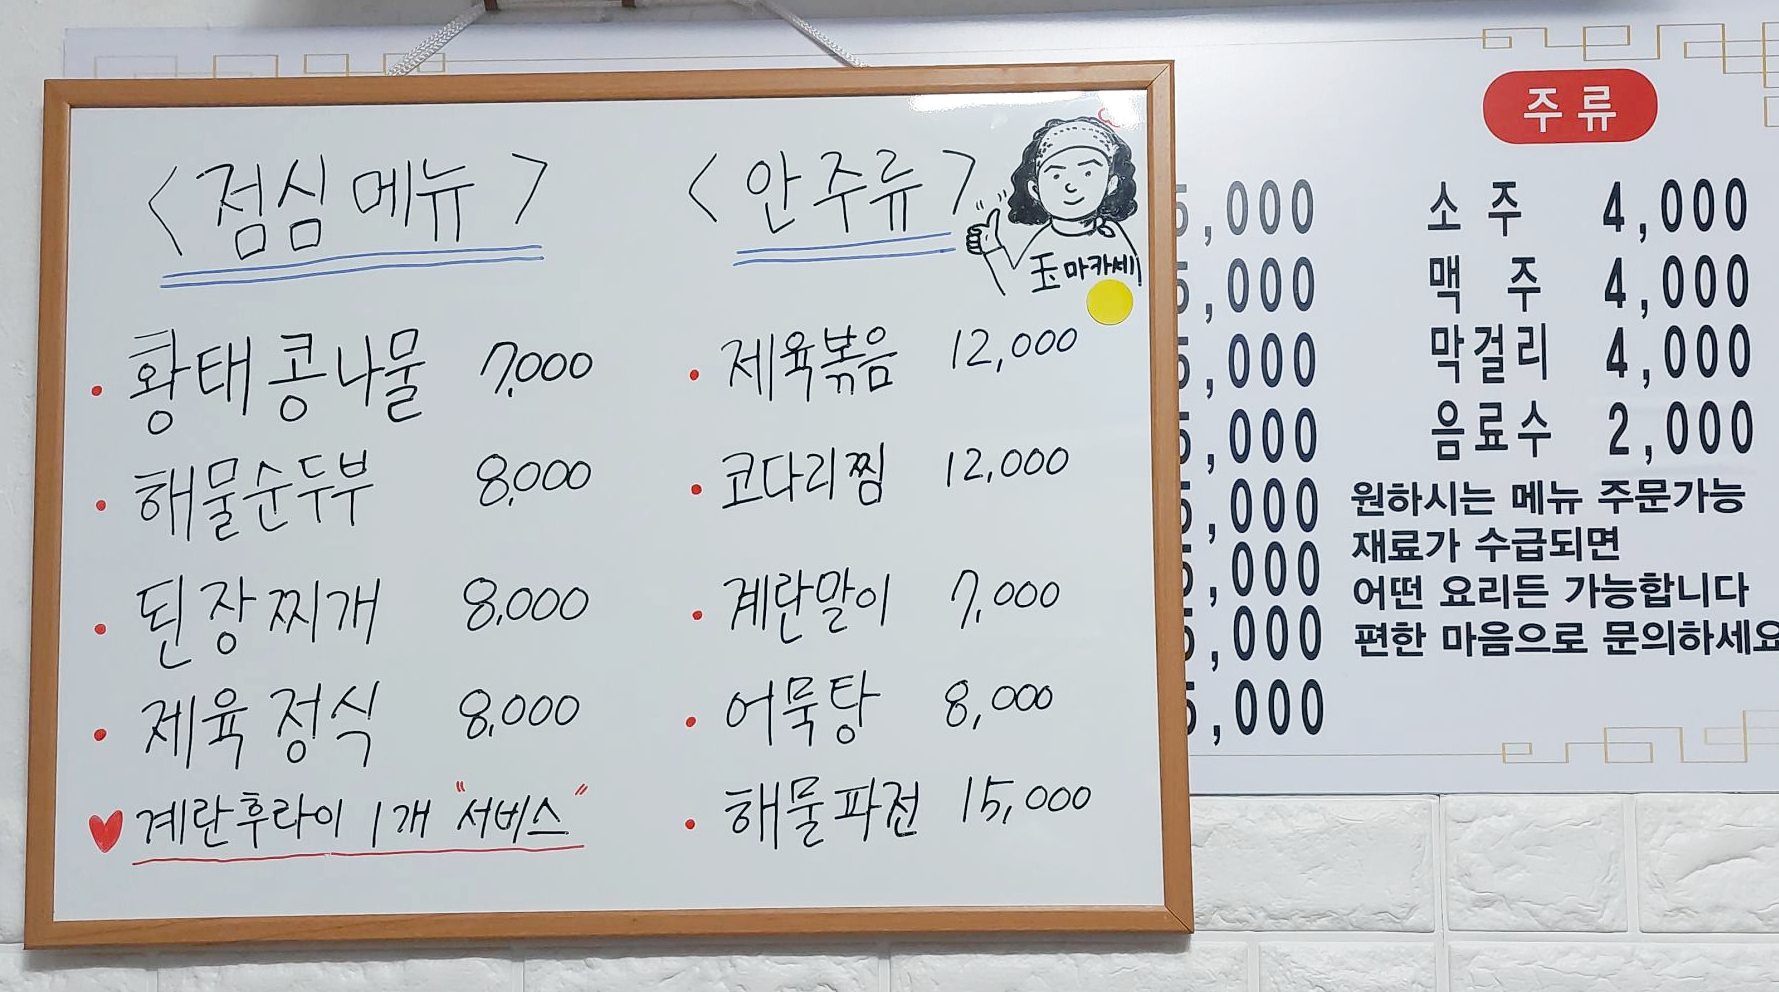 <점심메뉴>
황태콩나물 7,000
해물순두부 8,000
된장찌개 8,000
제육정식 8,000
계란후라이 1개 "서비스"
<안주류>
玉마카세
제육볶음 12,000
코다리찜 12,000
계란말이 7,000
어묵탕 8,000
해물파전 15,000
5,000
5,000
5,000
5,000
5,000
5,000
5,000
5,000
주류
소주 4,000
맥주 4,000
막걸리 4,000
음료수 2,000
원하시는 메뉴 주문가능
재료가 수급되면
어떤 요리든 가능합니다
편한 마음으로 문의하세요